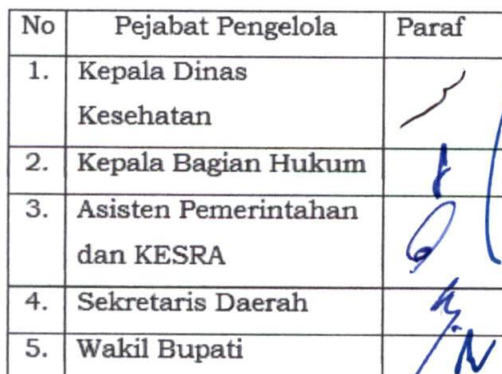 No Pejabat Pengelola Paraf
1. Kepala Dinas
Kesehatan
2. Kepala Bagian Hukum
3. Asisten Pemerintahan
dan KESRA
4. Sekretaris Daerah
5. Wakil Bupati